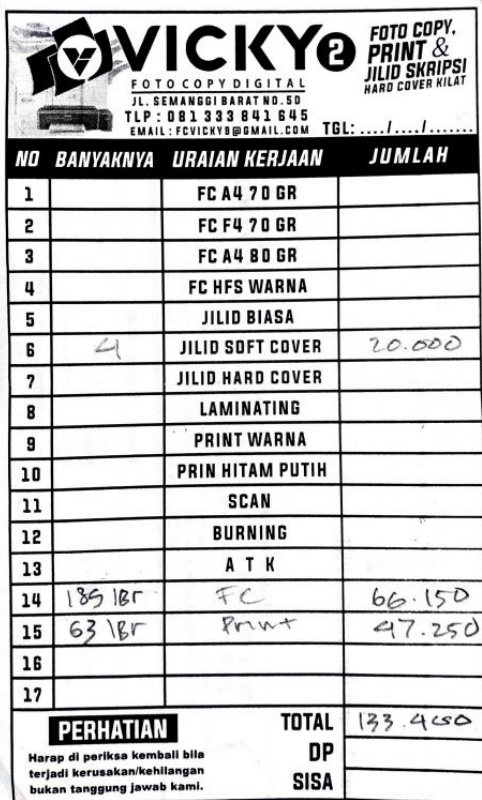 VICKY 2
FOTO COPY,
PRINT &
JILID SKRIPSI
HARD COVER KILAT
FOTOCOPY DIGITAL
JL. SEMANGGI BARAT NO. 5D
TLP : 081 333 841 645
EMAIL : FCVICKY9@GMAIL.COM
TGL: ..../..../.......
NO BANYAKNYA URAIAN KERJAAN JUMLAH
1 FC A4 70 GR
2 FC F4 70 GR
3 FC A4 80 GR
4 FC HFS WARNA
5 JILID BIASA
6 4 JILID SOFT COVER 20.000
7 JILID HARD COVER
8 LAMINATING
9 PRINT WARNA
10 PRIN HITAM PUTIH
11 SCAN
12 BURNING
13 A T K
14 189 lBr FC 66.150
15 63 lBr Print 47.250
16
17
PERHATIAN
Harap di periksa kembali bila
terjadi kerusakan/kehilangan
bukan tanggung jawab kami.
TOTAL 133.400
DP
SISA